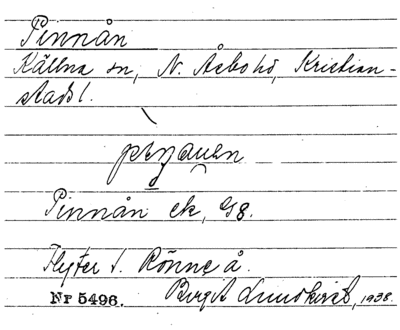 Pinnån
Källna sn, N. Åsbo hd, Kristian-
stads l.
Pinnån ek, G8.
Flyter t. Rönne å.
Nr 5496. Birgit Lundkvist, 1938.